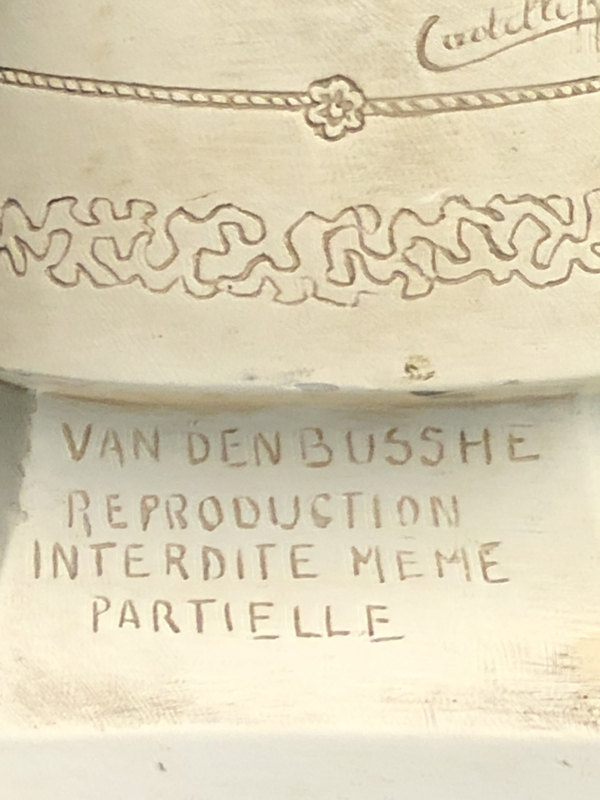 VAN DEN BUSSHE
REPRODUCTION
INTERDITE MEME
PARTIELLE